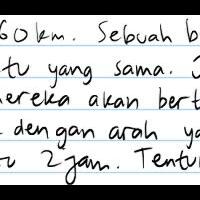 60 km. Sebuah b
tu yang sama. J
ereka akan bert
dengan arah ya
tu 2 jam. Tentu